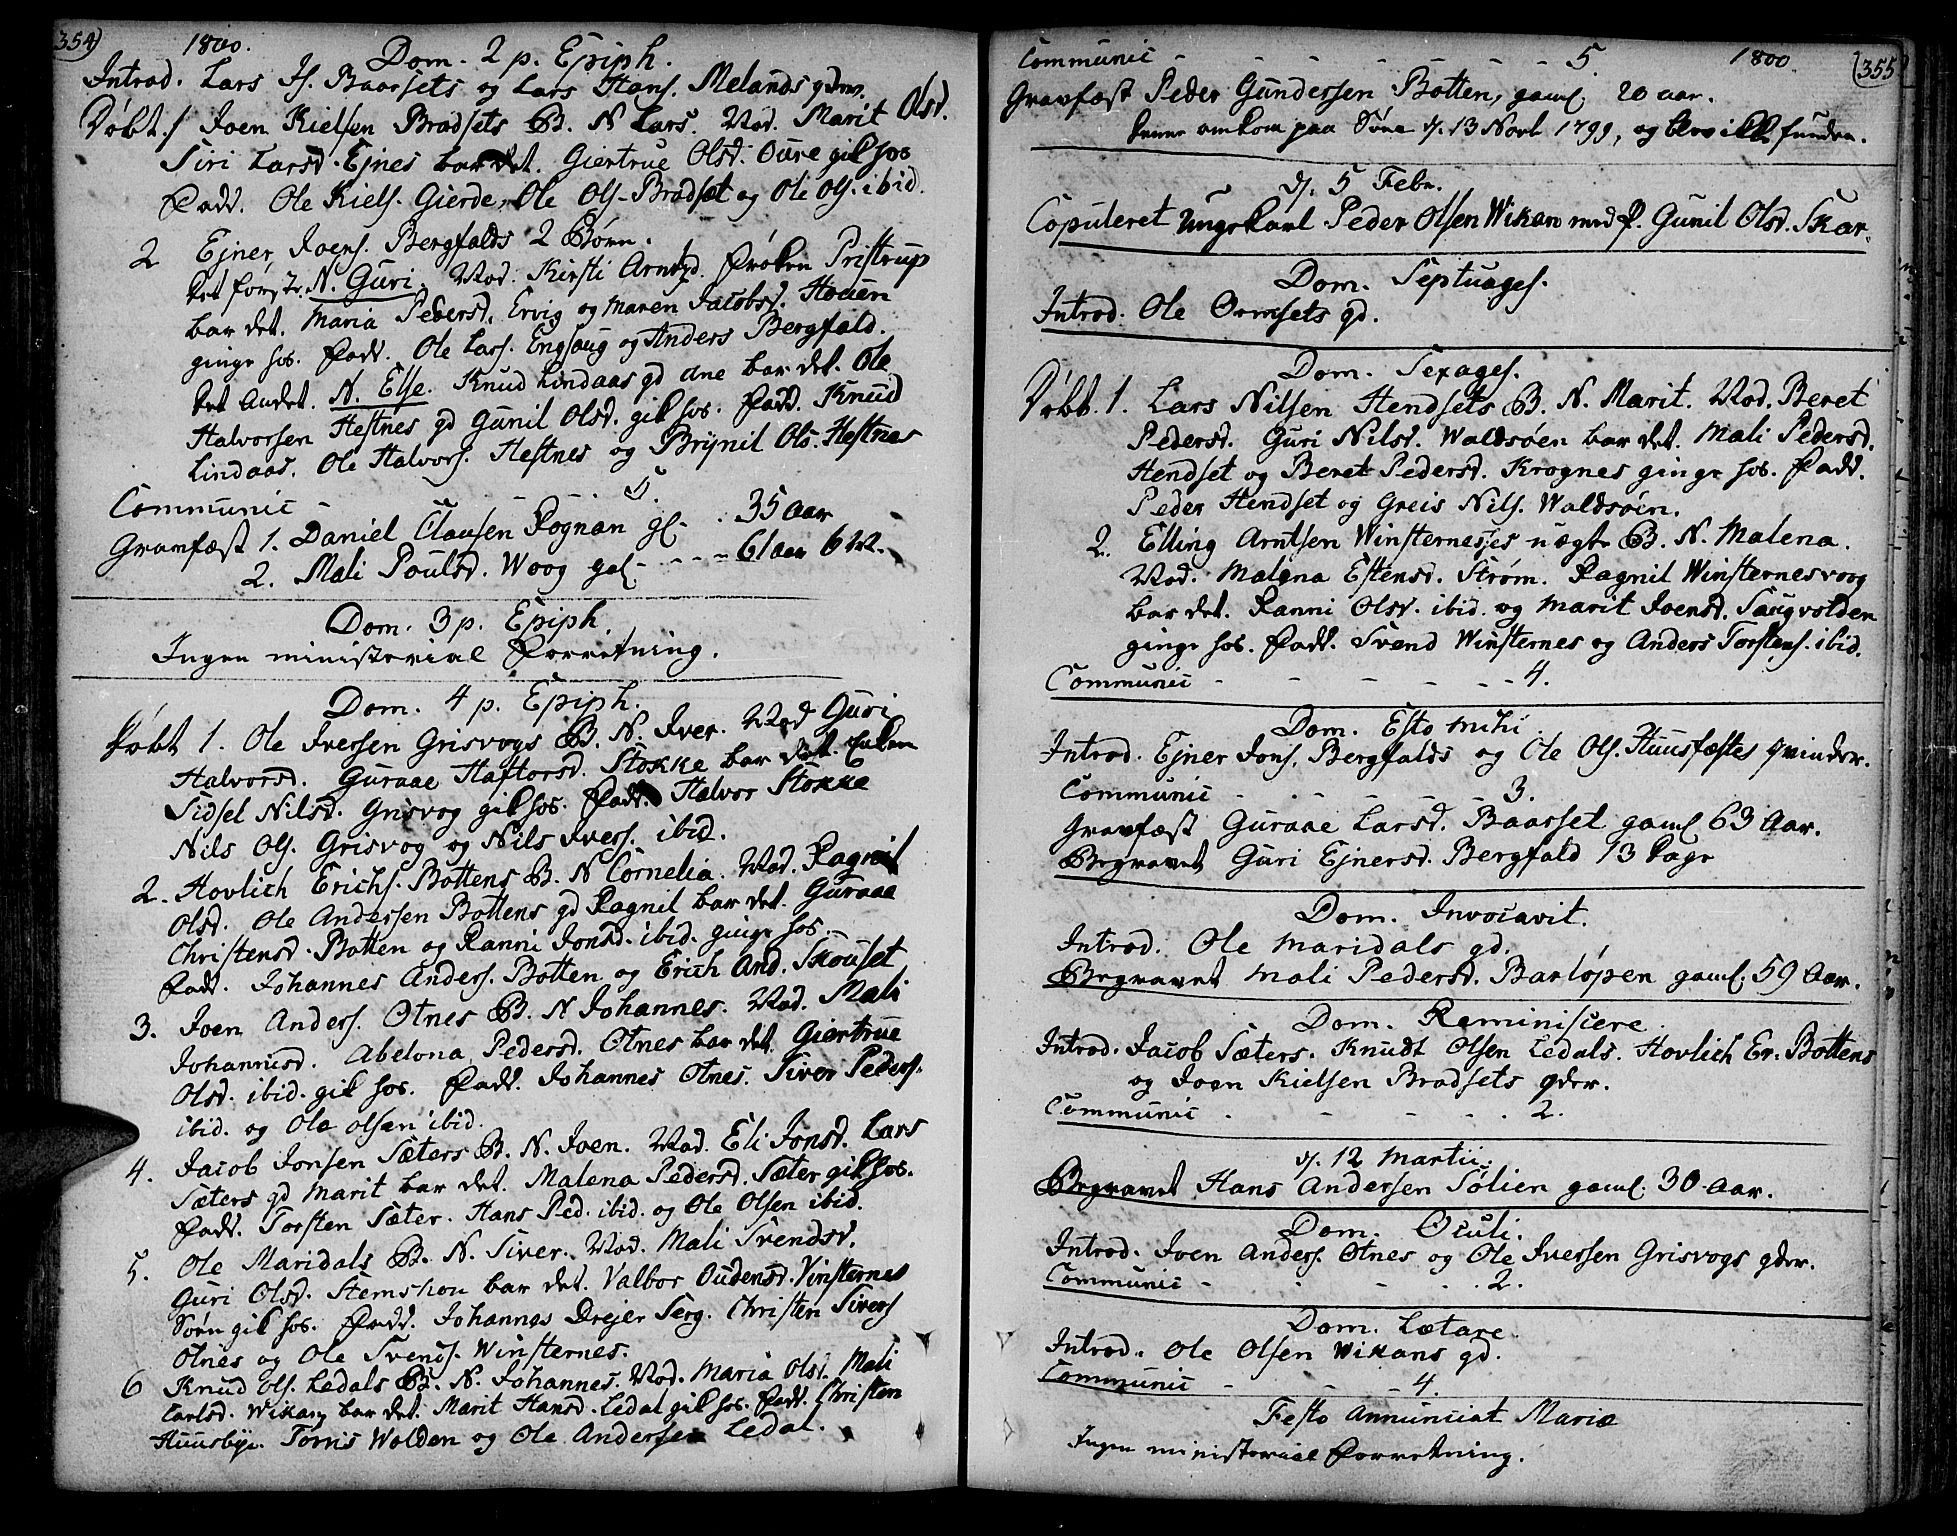 354) 1800.
Dom. 2 p. Epiph.
Introd. Lars Js. Baarsets og Lars Hans. Melands qdr.
Døbt. 1 Joen Kielsen Bradsets B. N Lars. Mod. Marit Olsd.
Siri Larsd. Ejnes bar det. Giertrue Olsd. Oure gik hos
Fadd. Ole Kiels. Gierde, Ole Ols. Bradset og Ole Ols. ibid.
2 Ejner Joens. Bergfalds 2 Børn.
det første N. Guri. Mod. Kirsti Arntsd. Frøken Pristrup
bar det. Maria Pedersd. Ervig og Maren Jacobsd. Houen
ginge hos. Fadd. Ole Lars. Engsaug og Anders Bergfald.
det Andet. N. Else. Knud Lindaas qd Ane bar det. Ole
Halvorsen Hestnes qd Gunil Olsd. gik hos. Fadd. Knud
Lindaas. Ole Halvors. Hestnes og Brynil Ols. Hestnes
Communic - 5.
Gravfæst 1. Daniel Clausen Rognan gl. - 35 Aar
2. Mali Poulsd. Woog gal. - - - 61 aar 6 M.
Dom. 3 p. Epiph.
Ingen ministerial Forretning.
Dom. 4 p. Epiph.
Døbt 1. Ole Iversen Grisvogs B. N. Iver. Mod Guri
Halvorsd. Guraae Haftorsd. Stokke bar det. Enken
Sidsel Nilsd. Grisvog gik hos. Fadd. Halvor Stokke
Nils Ols. Grisvog og Nils Ivers. ibid.
2. Hovlich Erichs. Bottens B. N Cornelia. Mod. Ragnil
Olsd. Ole Andersen Bottens qd Ragnil bar det. Guraae
Christensd. Botten og Ranni Jonsd. ibid. ginge hos.
Fadd. Johannes Anders. Botten og Erich And. Skouset
3. Joen Anders. Otnes B. N Johannes. Mod. Mali
Johannisd. Abelona Pedersd. Otnes bar det. Giertrue
Olsd. ibid. gik hos. Fadd. Johannes Otnes. Siver Peders.
ibid. og Ole Olsen ibid.
4. Jacob Jonsen Sæters B. N. Joen. Mod. Eli Jonsd. Lars
Sæters qd Marit bar det. Malena Pedersd. Sæter gik hos.
Fadd. Torsten Sæter. Hans Ped. ibid. og Ole Olsen ibid.
5. Ole Maridals B. N. Siver. Mod. Mali Svendsd.
Guri Olsd. Stemshou bar det. Valbor Oudensd. Vinsternes
Søen gik hos. Fadd. Johannes Drejer Serg. Christen Sivers
Otnes og Ole Svends. Winsternes.
6 Knud Ols. Ledals B. N. Johannes. Mod. Maria Olsd. Mali
Carlsd. Wikan bar det. Marit Hansd. Ledal gik hos. Fadd. Christen
Huusbye. Tornis Wolden og Ole Andersen Ledal.
1800. (355
Communic - - - - - - - 5.
Gravfæst Peder Gundersen Botten, gaml. 20 aar.
denne omkom paa Søen d. 13 Novb 1799, og blev ikke funden.
d. 5 Febr.
Copuleret Ungekarl Peder Olsen Wikan med P. Gunil Olsd. Skar.
Dom. Septuages.
Introd. Ole Ormsets qd.
Dom. Sexages.
Døbt. 1. Lars Nilsen Hendsets B. N. Marit. Mod. Beret
Pedersd. Guri Nilsd. Waldsøen bar det. Mali Pedersd.
Hendset og Beret Pedersd. Krognes ginge hos. Fadd.
Peder Hendset og Greis Nils. Waldsøen.
2. Elling Arntsen Winsternesses uægte B. N. Malena.
Mod. Malena Estensd. Strøm. Ragnil Winsternesvoog
bar det. Ranni Olsd. ibid. og Marit Joensd. Saugvolden
ginge hos. Fadd. Svend Winsternes og Anders Torstens. ibid.
Communic - - - - - - 4.
Dom. Esto mihi.
Introd. Ejner Jons. Bergfalds og Ole Ols. Huusfæstes qvinder.
Communic - - - - - - 3.
Gravfæst Guraae Larsd. Baarset gaml. 63 Aar.
Begravet Guri Ejnersd. Bergfald 13 Dage
Dom. Invocavit.
Introd. Ole Maridals qd.
Begravet Mali Pedersd. Barløpen gaml. 59 Aar.
Dom. Reminiscere.
Introd. Jacob Sæters. Knudt Olsen Ledals. Hovlich Er. Bottens
og Joen Kielsen Bradsets qder.
Communic . - - - . 2.
d. 12 Martii.
Begravet Hans Andersen Sølien gaml. 30 Aar.
Dom. Oculi.
Introd. Joen Anders. Otnes og Ole Iversen Grisvogs qder.
Communic - - - . 2.
Dom. Lætare.
Introd. Ole Olsen Wikans qd.
Communic - - - 4.
Festo Annunciat Mariæ
Ingen ministerial Forretning.